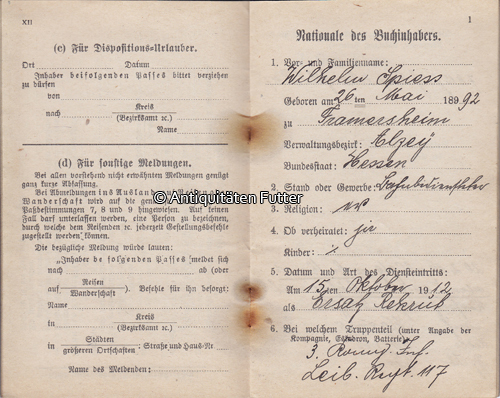 XII
(c) Für Dispositions-Urlauber.
Ort Datum
Inhaber beifolgenden Passes bittet verziehen
zu dürfen
von
nach Kreis
(Bezirksamt ꝛc.)
Name
(d) Für sonstige Meldungen.
Bei allen vorstehend nicht erwähnten Meldungen genügt
ganz kurze Abfassung.
Bei Abmeldungen ins Ausland auf Reisen oder
Wanderschaft wird auf die
Paßbestimmungen 7, 8 und 9 hingewiesen. Auf keinen
Fall darf unterlassen werden, eine Person zu bezeichnen,
durch welche dem Reisenden ꝛc. jederzeit Gestellungsbefehle
zugestellt werden können.
Die bezügliche Meldung würde lauten:
„Inhaber beifolgenden Passes meldet sich
nach ab (oder
auf Reisen
Wanderschaft). Befehle für ihn besorgt:
Name
in Kreis
(Bezirksamt ꝛc.)
in Städten
größeren Ortschaften: Straße und Haus-Nr.
Name des Meldenden:
1
Nationale des Buchinhabers.
1. Vor- und Familienname:
Wilhelm Spiess
Geboren am 26ten Mai 1892
zu Framersheim
Verwaltungsbezirk: Alzey
Bundesstaat: Hessen
2. Stand oder Gewerbe:
3. Religion: ev
4. Ob verheiratet: ja
Kinder:
5. Datum und Art des Diensteintritts:
Am 15ten Oktober 1912
als Ersatz Rekrut
6. Bei welchem Truppenteil (unter Angabe der
Kompagnie, Eskadron, Batterie):
3. Komp. Inf.
Leib. Regt. 117
© Antiquitäten Futter